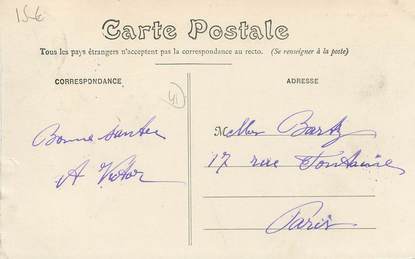 15€
Carte Postale
Tous les pays étrangers n'acceptent pas la correspondance au recto. (Se renseigner à la poste)
CORRESPONDANCE
ADRESSE
41
Bonne santée
A Victor
Melles Bartz
17 rue Fontaine
Paris